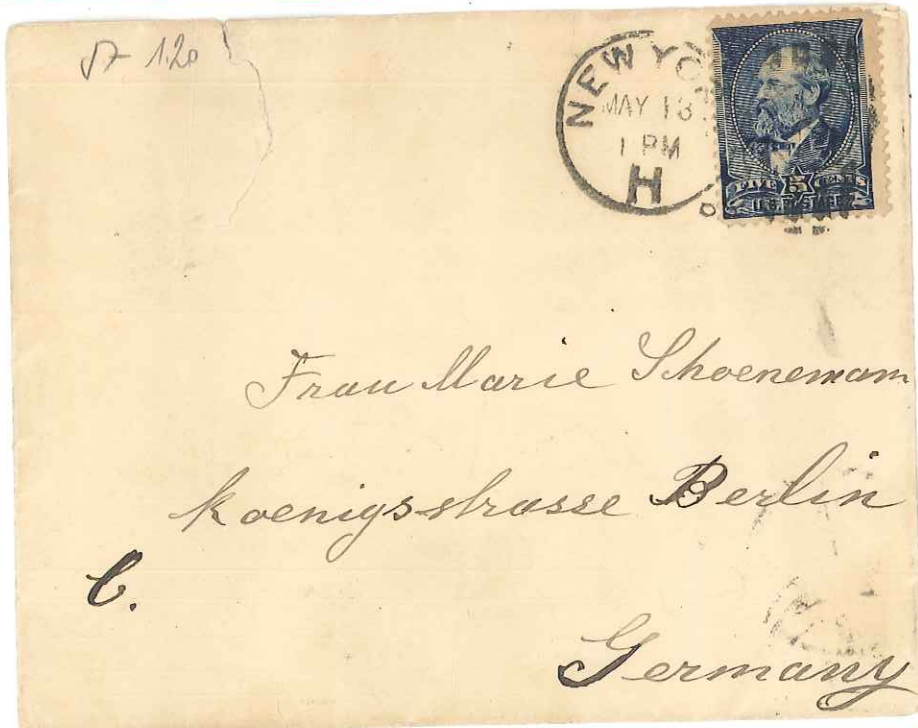 1.20
NEW YOR
MAY 13
1 PM
H
FIVE 5 CENTS
U.S. POSTAGE
Frau Marie Schoenemann
Koenigsstrasse Berlin
C.
Germany